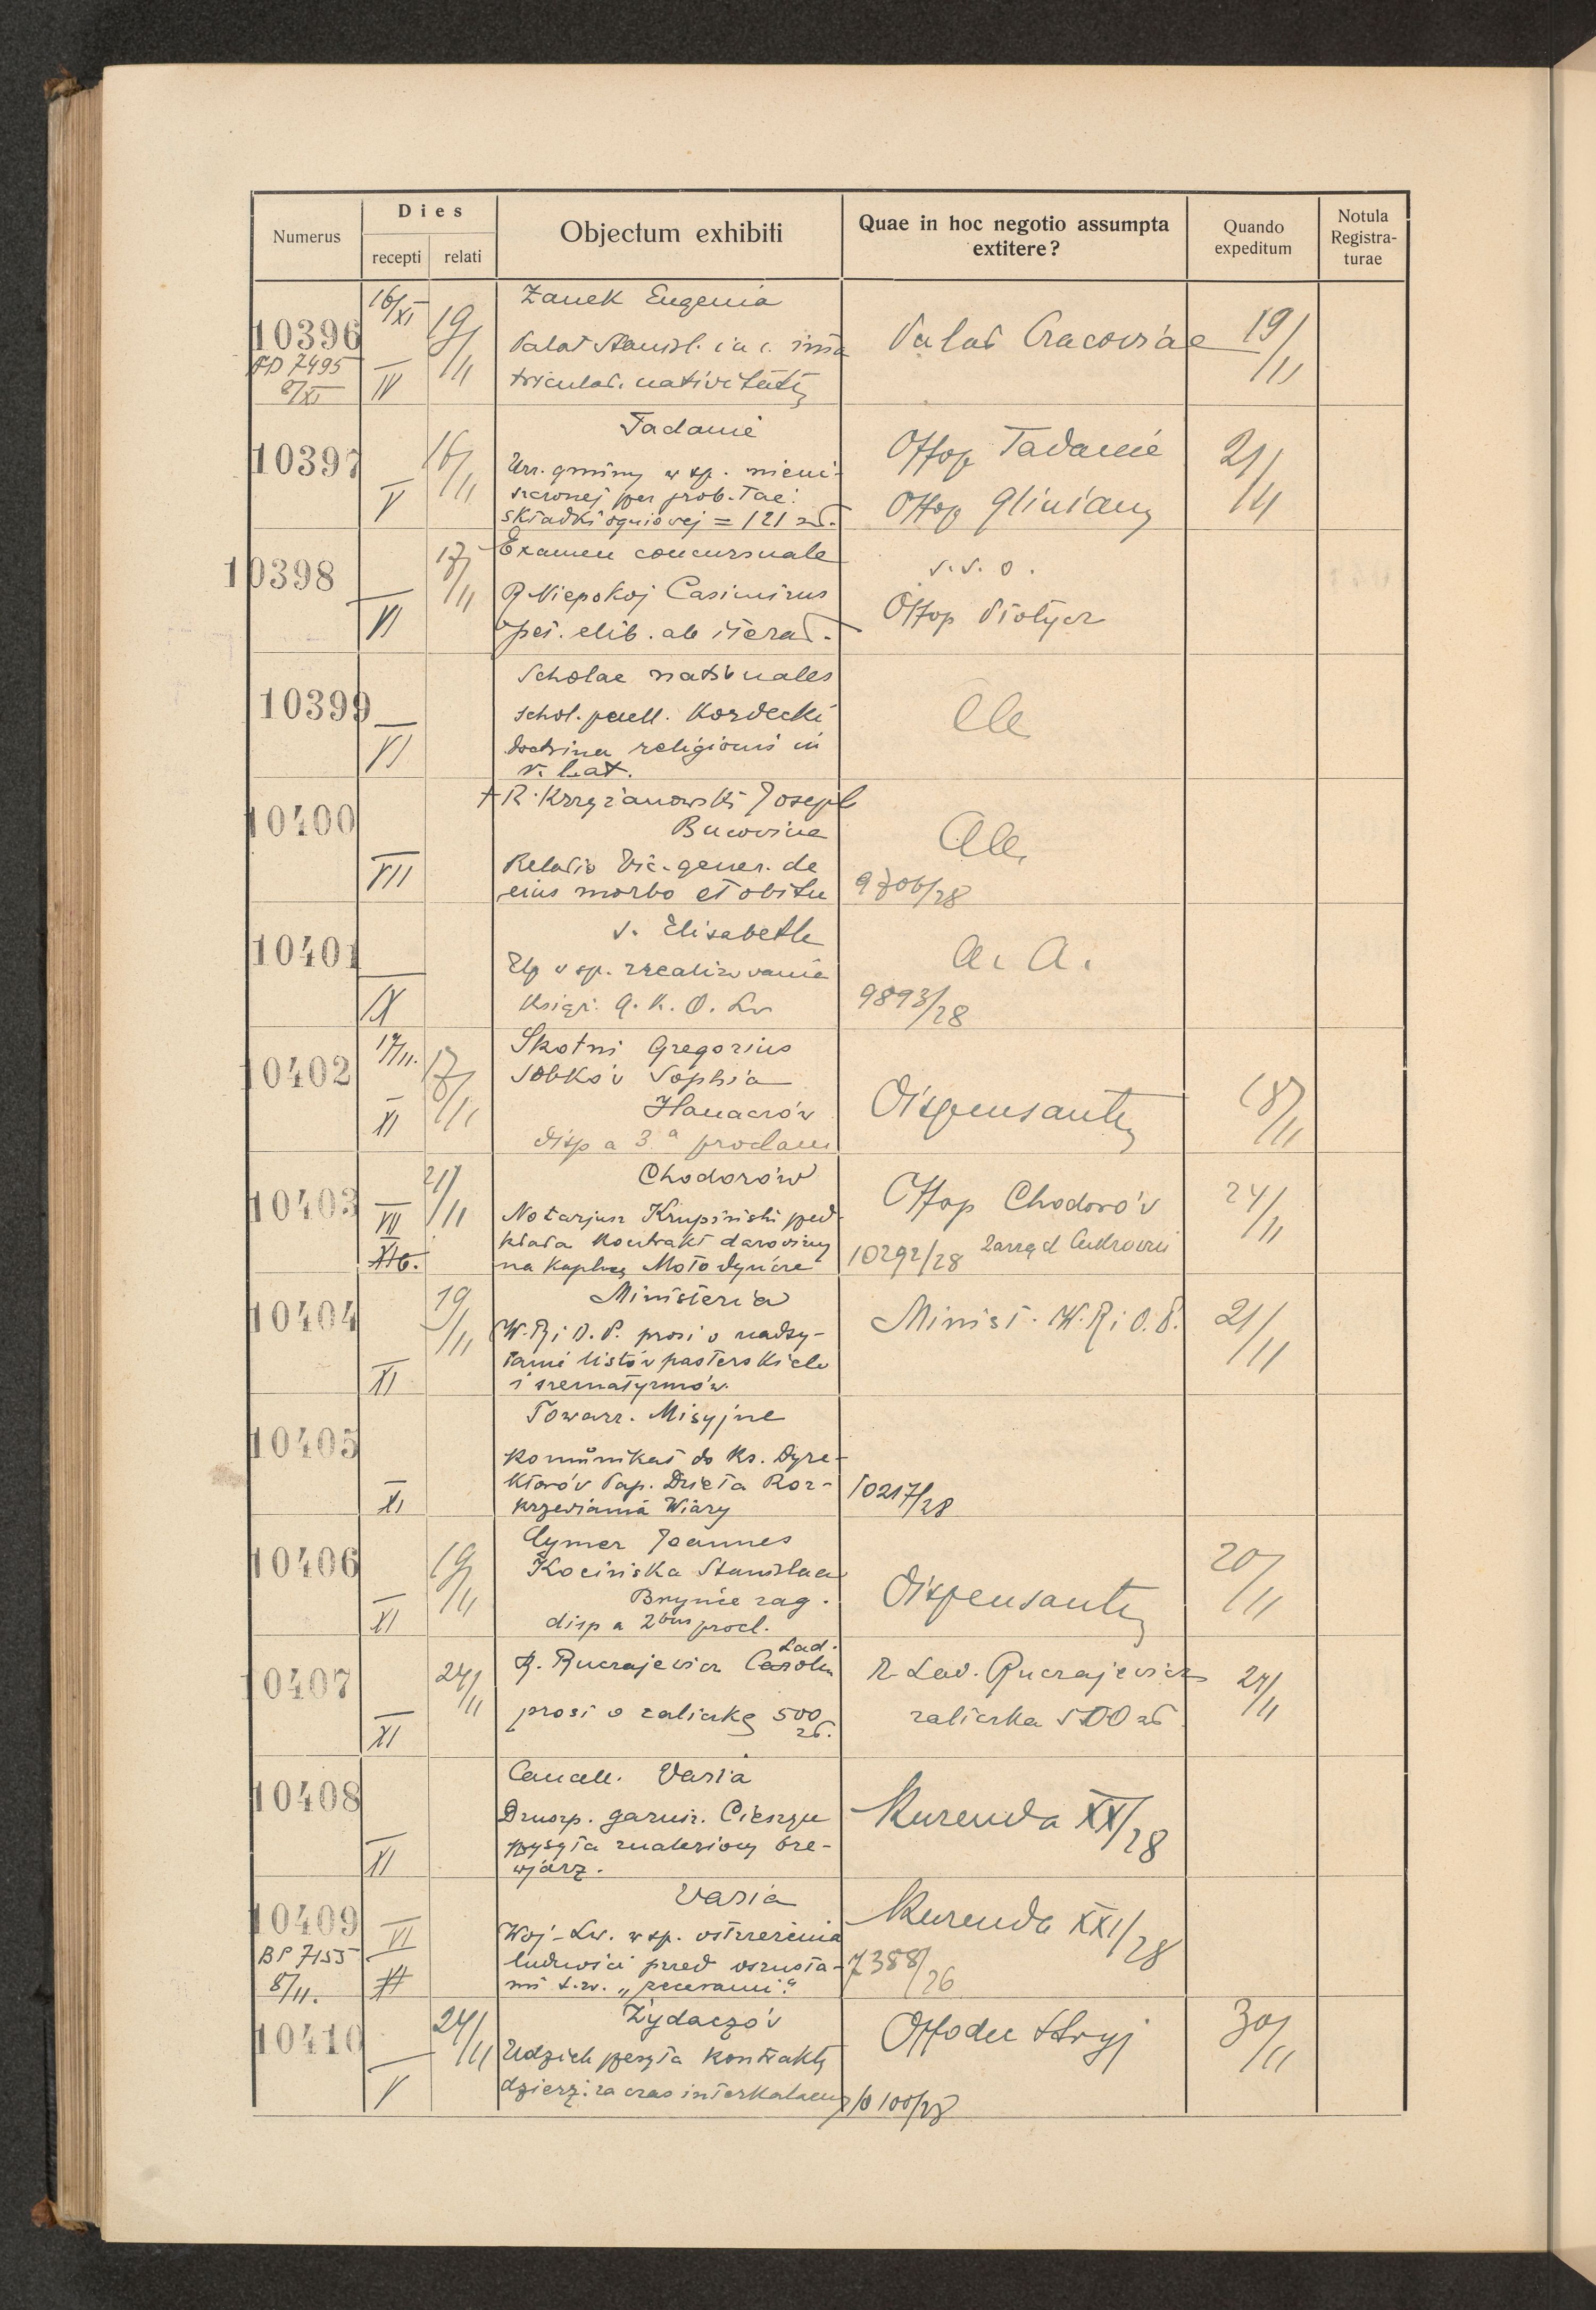 Numerus
Dies
recepti relati
Objectum exhibiti
Quae in hoc negotio assumpta
extitere?
Quando
expeditum
Notula
Registra-
turae
10396
7495
16/XI
IV
19/11
Żanek Eugenia
Palat Stanisl. i a c. ima
triculat. nativitatis
Palat Cracoviae
19/11
10397
V
16/11
Tadanie
Urz. gminy w sp. nieui-
szczonej per prob. Tad.
składki ogniowej = 121 zł.
Offop Tadanie
Offop Gliniany
21/11
10398
VI
17/11
Examen concursuale
R. Niepokoj Casimirus
pet. elib. ab iterat.
s. s. o.
Offop Piotycz
10399
VI
Scholae nationales
schol. puell. Kordecki
doctrina religionis in
r. lat.
10400
VII
+ R. Krzyżanowski Joseph
Bucovina
Relatio Vic. gener. de
eius morbo et obitu
9706/28
10401
IX
s. Elisabeth
w sp. zrealizowania
Książ. P. K. O. Lw
a. a.
9893/28
10402
17/11.
XI
17/11
Skotni Gregorius
Sobków Sophia
Hanaczów
disp a 3a proclam
Dispensantur
18/11
10403
VII
XI
21/11
Chodorów
Notarjusz Krupiński przed-
kłada kontrakt darowizny
na kaplicę Mołodyńcze
Offop Chodorów
10292/28 Zarząd Cukrowni
24/11
10404
XI
19/11
Ministeria
W. R. i O. P. prosi o nadsy-
łanie listów pasterskich
i szematyzmów.
Minist. W. R. i O. P.
21/11
10405
XI
Towarz. Misyjne
Komunikat do Ks. Dyre-
ktorów Pap. Dzieła Roz-
krzewiania Wiary
10217/28
10406
XI
19/11
Cymer Joannes
Kocińska Stanislaa
Brynce zag.
disp a 2bus procl.
Dispensantur
20/11
10407
XI
24/11
Lad.
R. Ruczajewicz Carolu
prosi o zaliczkę 500
zł.
R. Lad. Ruczajewicz
zaliczka 500 zł
24/11
10408
XI
Cancell. Varia
Duszp. garniz. Cieszyn
przysyła znaleziony bre-
wjarz.
Kurenda XX/28
10409
BP 7155
8/11.
VI
Varia
Woj. Lw. w sp. ostrzeżenia
ludności przed oszusta-
mi t. zw.
Kurenda XXI/28
7388/26
10410
V
24/11
Żydaczów
Udzieh przesyła kontrakty
dzierż. za czas interkalarny
Offodec Stryj
10100/28
30/11